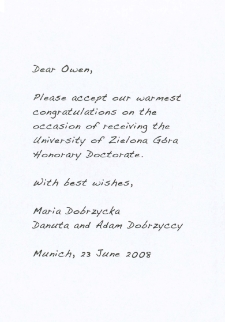 Dear Owen,
Please accept our warmest
congratulations on the
occasion of receiving the
University of Zielona Góra
Honorary Doctorate.
With best wishes,
Maria Dobrzycka
Danuta and Adam Dobrzyccy
Munich, 23 June 2008